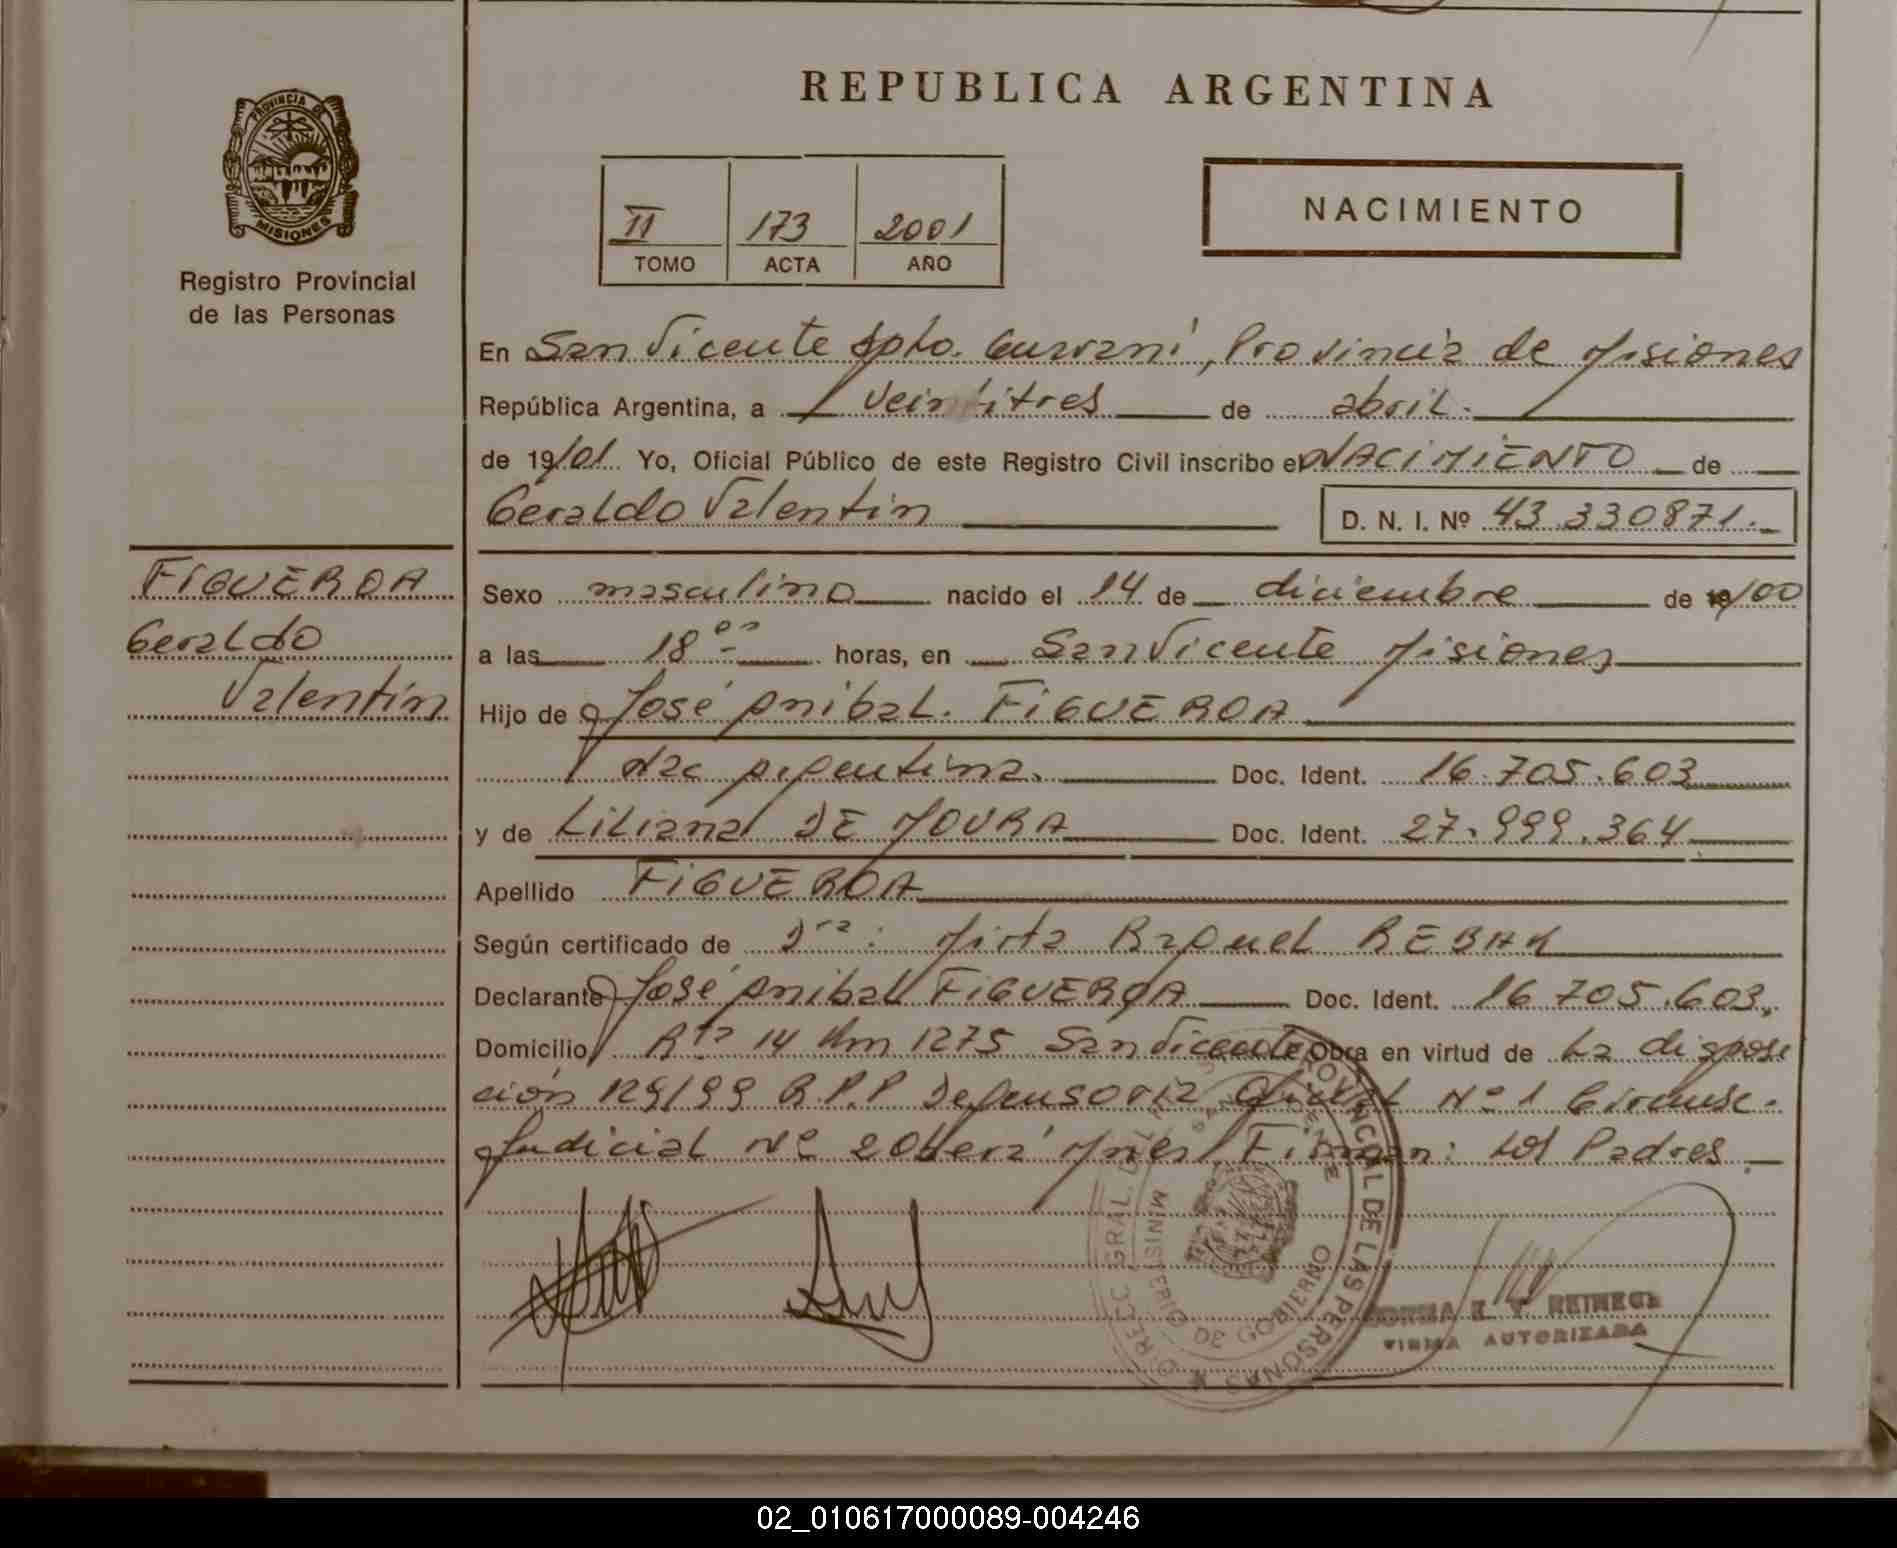 REPUBLICA ARGENTINA
PROVINCIA DE
MISIONES
Registro Provincial
de las Personas
II 173 2001
TOMO ACTA AÑO
NACIMIENTO
En San Vicente Dpto. Guaraní, Provincia de Misiones
República Argentina, a veintitres de abril.
de 19/01 Yo, Oficial Público de este Registro Civil inscribo el NACIMIENTO de
Geraldo Valentín
D. N. I. Nº 43.330871.
FIGUEROA
Geraldo
Valentín
Sexo masculino nacido el 14 de diciembre de 19/00
a las 18 horas, en San Vicente Misiones
Hijo de José Anibal. FIGUEROA
Nac Argentina. Doc. Ident. 16.705.603
y de Liliana DE MOURA Doc. Ident. 27.999.364
Apellido FIGUEROA
Según certificado de Dra: Mirta Raquel
Declarante José Anibal FIGUEROA Doc. Ident. 16.705.603,
Domicilio Rta 14 Km 1275 San Vicente Obra en virtud de La disposi
ción 129/99 R.P.P Defensoria Oficial Nº 1 Circunsc.
Judicial Nº 2 Oberá Mnes/ Firman: los Padres
DIRECC. GRAL. DEL REGISTRO PROVINCIAL DE LAS PERSONAS
MINISTERIO DE GOBIERNO
SAN VICENTE
FIRMA AUTORIZADA
02_010617000089-004246